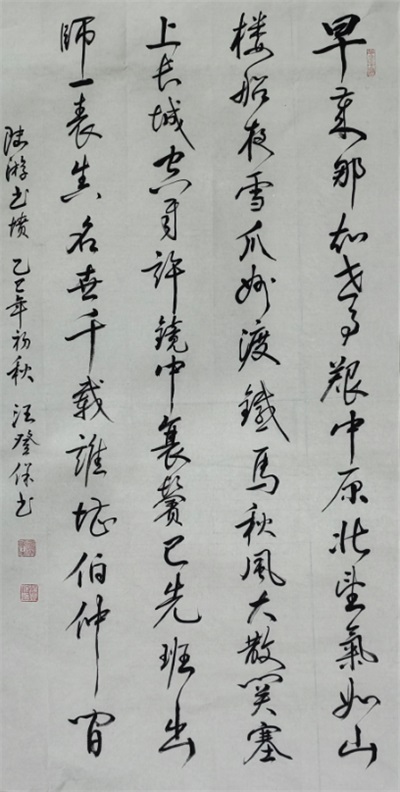 早歲那知世事艱中原北望氣如山
楼船夜雪瓜洲渡鐵馬秋風大散关塞
上长城空自許鏡中衰鬓已先班出
師一表真名世千載誰堪伯仲间
陆游书愤 乙巳年初秋 汪登保书